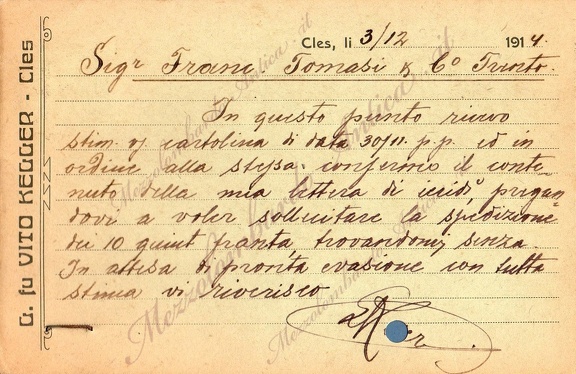 G. fu VITO KEGGER - Cles
Cles, li 3/12 1914.
Sigr Franc Tomasi & Co Trento.
In questo punto ricevo
stim. vs cartolina di data 30/11. p.p. ed in
ordine alla stessa confermo il conte-
nuto della mia lettera di ieri pregan-
dovi a voler sollicitare la spedizione
dei 10 quint. franta, trovandomi senza.
In attesa di pronta evasione con tutta
stima vi riverisco
Mezzolombardo Antica . it